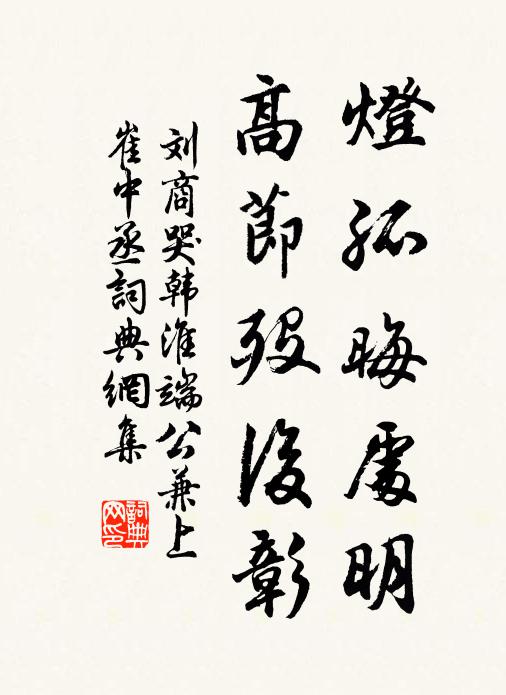 燈孤晦處明
高節歿後彰
刘商哭韩淮端公兼上
崔中丞詞典網集
詞典网印